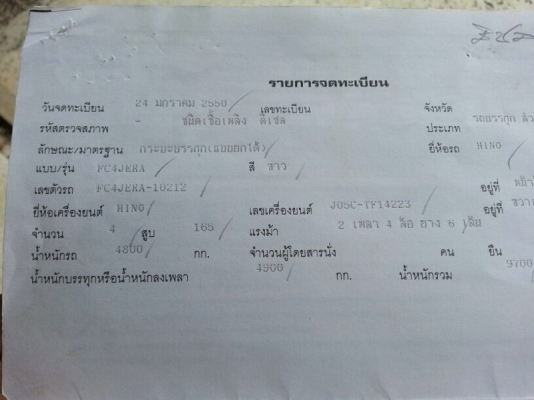 รายการจดทะเบียน
วันจดทะเบียน 24 มกราคม 2550 เลขทะเบียน จังหวัด
รหัสตรวจสภาพ - ชนิดเชื้อเพลิง ดีเซล ประเภท รถบรรทุก
ลักษณะ/มาตรฐาน กระบะบรรทุก(แบบยกได้) ยี่ห้อรถ HINO
แบบ/รุ่น FC4JERA สี ขาว
เลขตัวรถ FC4JERA-10212 อยู่ที่
ยี่ห้อเครื่องยนต์ HINO เลขเครื่องยนต์ J05C-TF14223 อยู่ที่
จำนวน 4 สูบ 165 แรงม้า 2 เพลา 4 ล้อ ยาง 6 เส้น
น้ำหนักรถ 4800 กก. จำนวนผู้โดยสารนั่ง คน ยืน
น้ำหนักบรรทุกหรือน้ำหนักลงเพลา 4900 กก. น้ำหนักรวม 9700